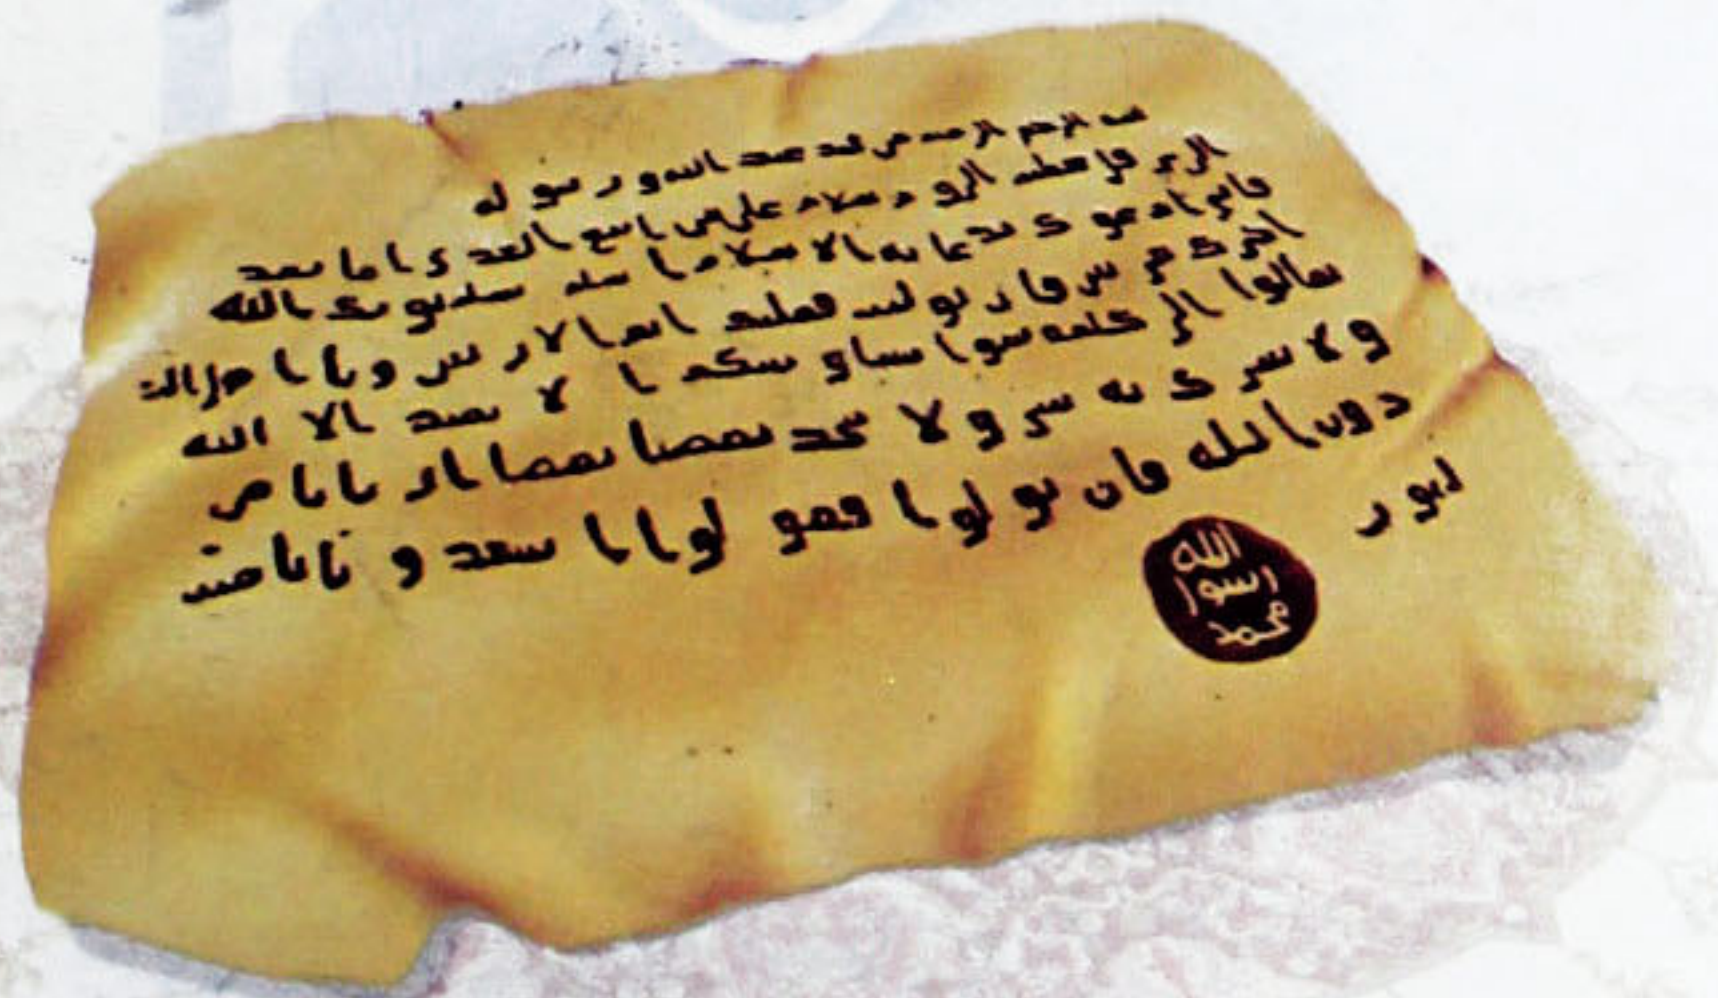 الرحمن الرحيم من محمد عبد الله و رسوله
الى عظيم الروم سلام على من اتبع الهدى اما بعد
فانى ادعوك بدعاية الاسلام اسلم تسلم يوتك الله
اجرك مرتين فان توليت فعليك اثم و يا اهل
تعالوا الى كلمة سوا بيننا و بينكم ا لا نعبد الا الله
و لا نشرك به و لا يتخذ بعضنا بعضا اربابا من
دون الله فان تولوا فقولوا اشهدوا
الله
رسول
محمد